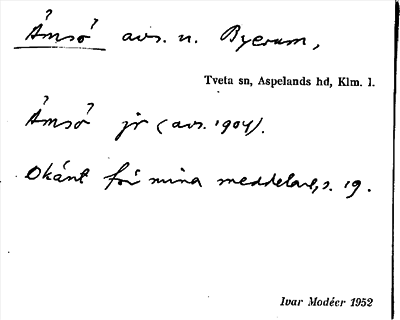 Åmsö avs. n. Byerum,
Tveta sn, Aspelands hd, Klm. l.
Åmsö jr (avs. 1904).
Okänt för mina meddelare, s. 19.
Ivar Modéer 1952